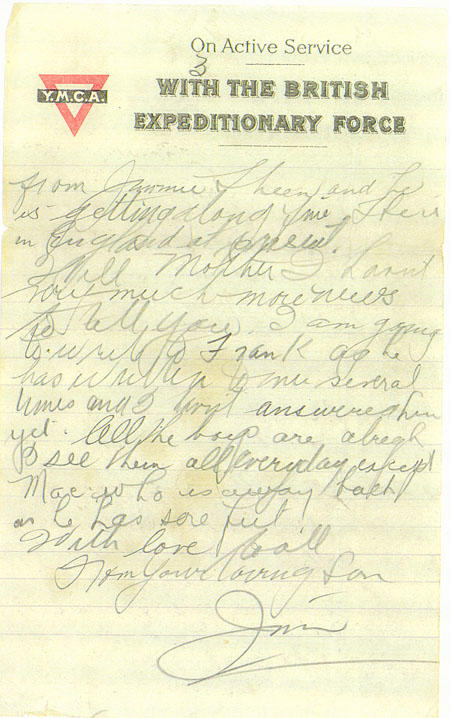 On Active Service
3
WITH THE BRITISH
EXPEDITIONARY FORCE
Y.M.C.A.
from Jimmie Sheen and he
is getting along fine. He is
in England at present.
Well Mother I havnt
very much more news
to tell you. I am going
to write to Frank as he
has written to me several
times and I havnt answered him
yet. All the boys are alregh
I see them all everyday except
Mac who is away back
as he has sore feet
With love to all
From your loving Son
Jim